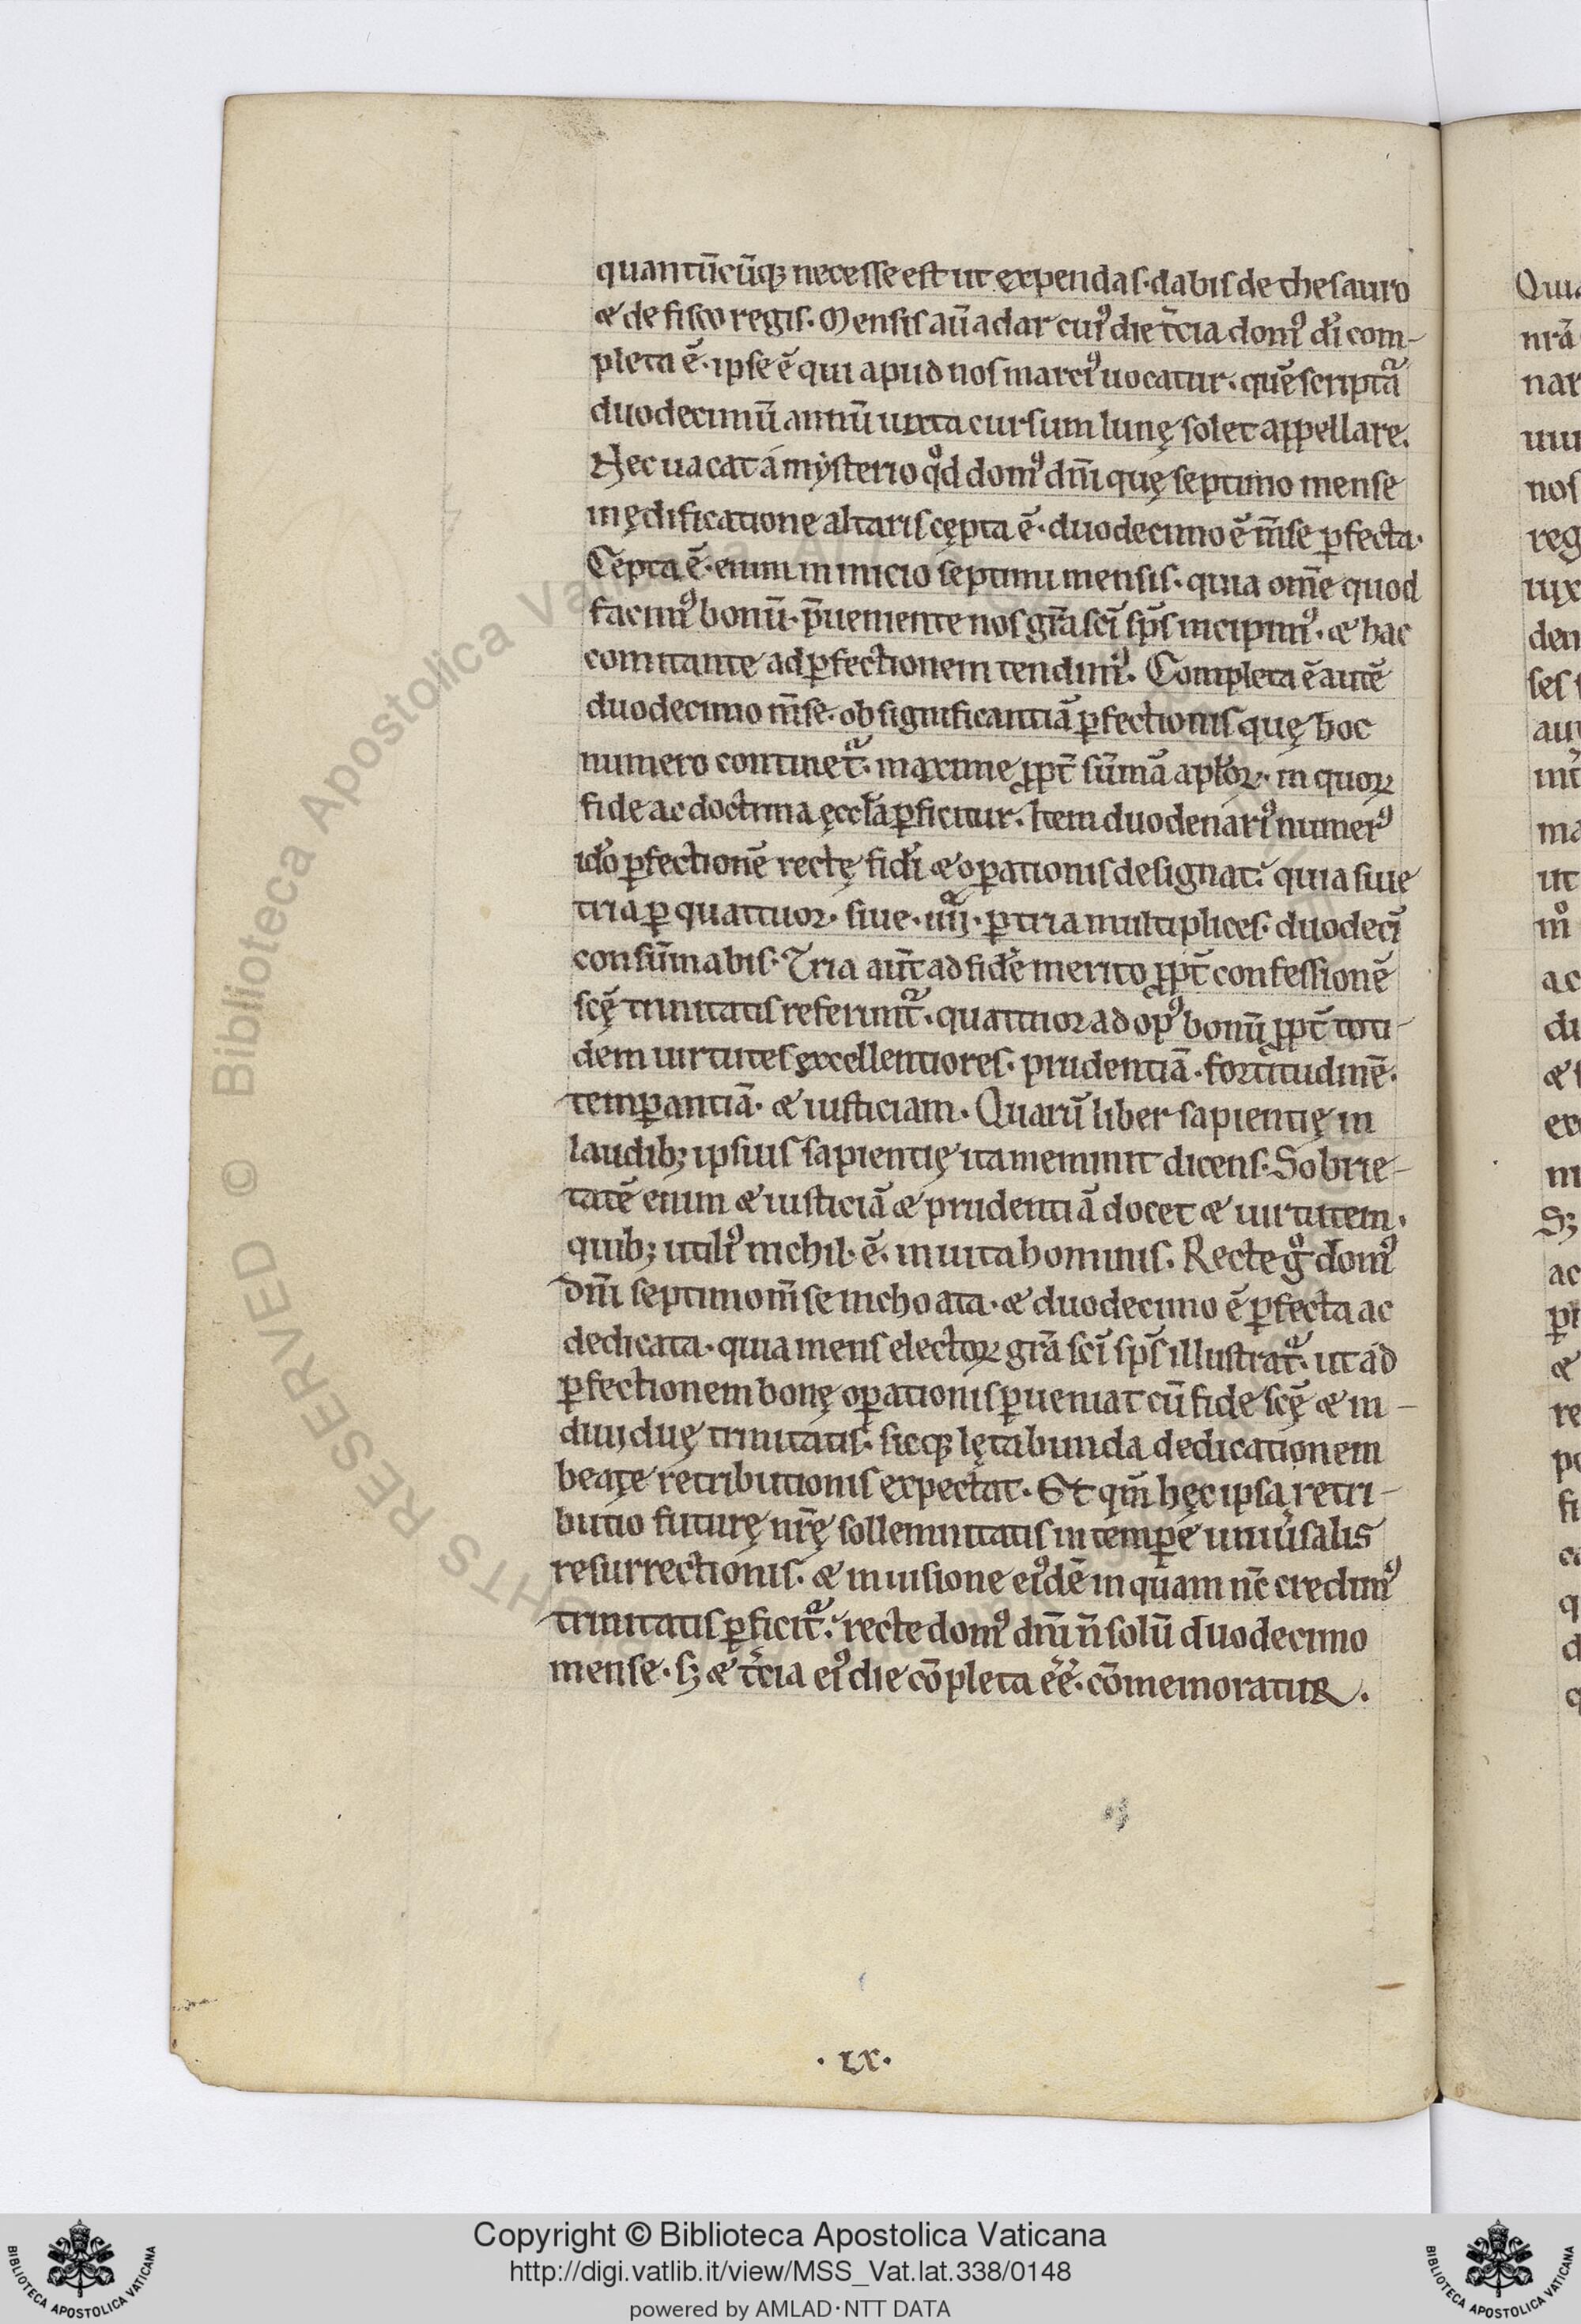 quantū cūq; necesse est ut expendas· dabis de thesauro
& de fisco regis. Mensis aū adar cuiꝰ die t̄cia domꝰ dī com-
pleta ē· ipse ē qui apud nos marciꝰ uocatur· quē scriptᵃ̄
duodecimū annū iuxta cursum lunę solet appellare.
Nec uacat a mẏsterio qͦd domꝰ dn̄i quę septimo mense
in ędificatione altaris cępta ē· duodecimo ē m̄se ꝑfecta·
Cępta ē· enim in inicio septimi mensis· quia om̄e quod
facimꝰ bonū· p̄ueniente nos gr̄a sc̄i sp̄s incipimꝰ· & hac
comitante ad ꝑfectionem tendimꝰ. Completa ē autē
duodecimo m̄se· ob significantiā ꝑfectionis quę hoc
numero continet᷑· maxime ꝓpt̄ sūmā apl̄oꝝ· in quoꝝ
fide ac doctrina ęccl̄a ꝑficitur. Item duodenariꝰ numerꝰ
id̄o ꝑfectionē rectę fidei & oꝑationis designat᷑ quia siue
tria ꝑ quattuor· siue· iiijᵒʳ· ꝑ tria multiplices· duodecī
consūmabis· Tria aūt ad fidē merito ꝓpt̄ confessionē
sc̄ę trinitatis referunt᷑· quattuor ad opꝰ bonū ꝓpt̄ toti-
dem uirtutes excellentiores· prudentiā· fortitudinē·
temꝑantiā· & iusticiam. Quarū liber sapientię in
laudib; ipsius sapientię ita meminit dicens· Sobrie-
tatē enim & iusticiā & prudentiā docet & uirtutem·
quib; utiliꝰ nichil· ē· in uita hominis. Recte gͦ domꝰ
dn̄i septimo m̄se inchoata· & duodecimo ē ꝑfecta ac
dedicata· quia mens electoꝝ gr̄a sc̄i sp̄s illustrat᷑· ut ad
ꝑfectionem bonę oꝑationis ꝑueniat cū fide sc̄ę & in-
diuiduę trinitatis· sicq; lętabunda dedicationem
beatę retributionis expectat. Et qm̄ hęc ipsa retri-
butio futurę nr̄ę sollemnitatis in temꝑe uniu͛salis
resurrectionis· & in uisione eiꝰdē in quam nc̄ credimꝰ
trinitatis ꝑficit᷑· recte domꝰ dn̄i n̄ solū duodecimo
mense· sꝫ & t̄cia eiꝰ die cōpleta eē· cōmemoratur.
· ix·
Copyright © Biblioteca Apostolica Vaticana
http://digi.vatlib.it/view/MSS_Vat.lat.338/0148
powered by AMLAD·NTT DATA
BIBLIOTECA APOSTOLICA VATICANA
BIBLIOTECA APOSTOLICA VATICANA